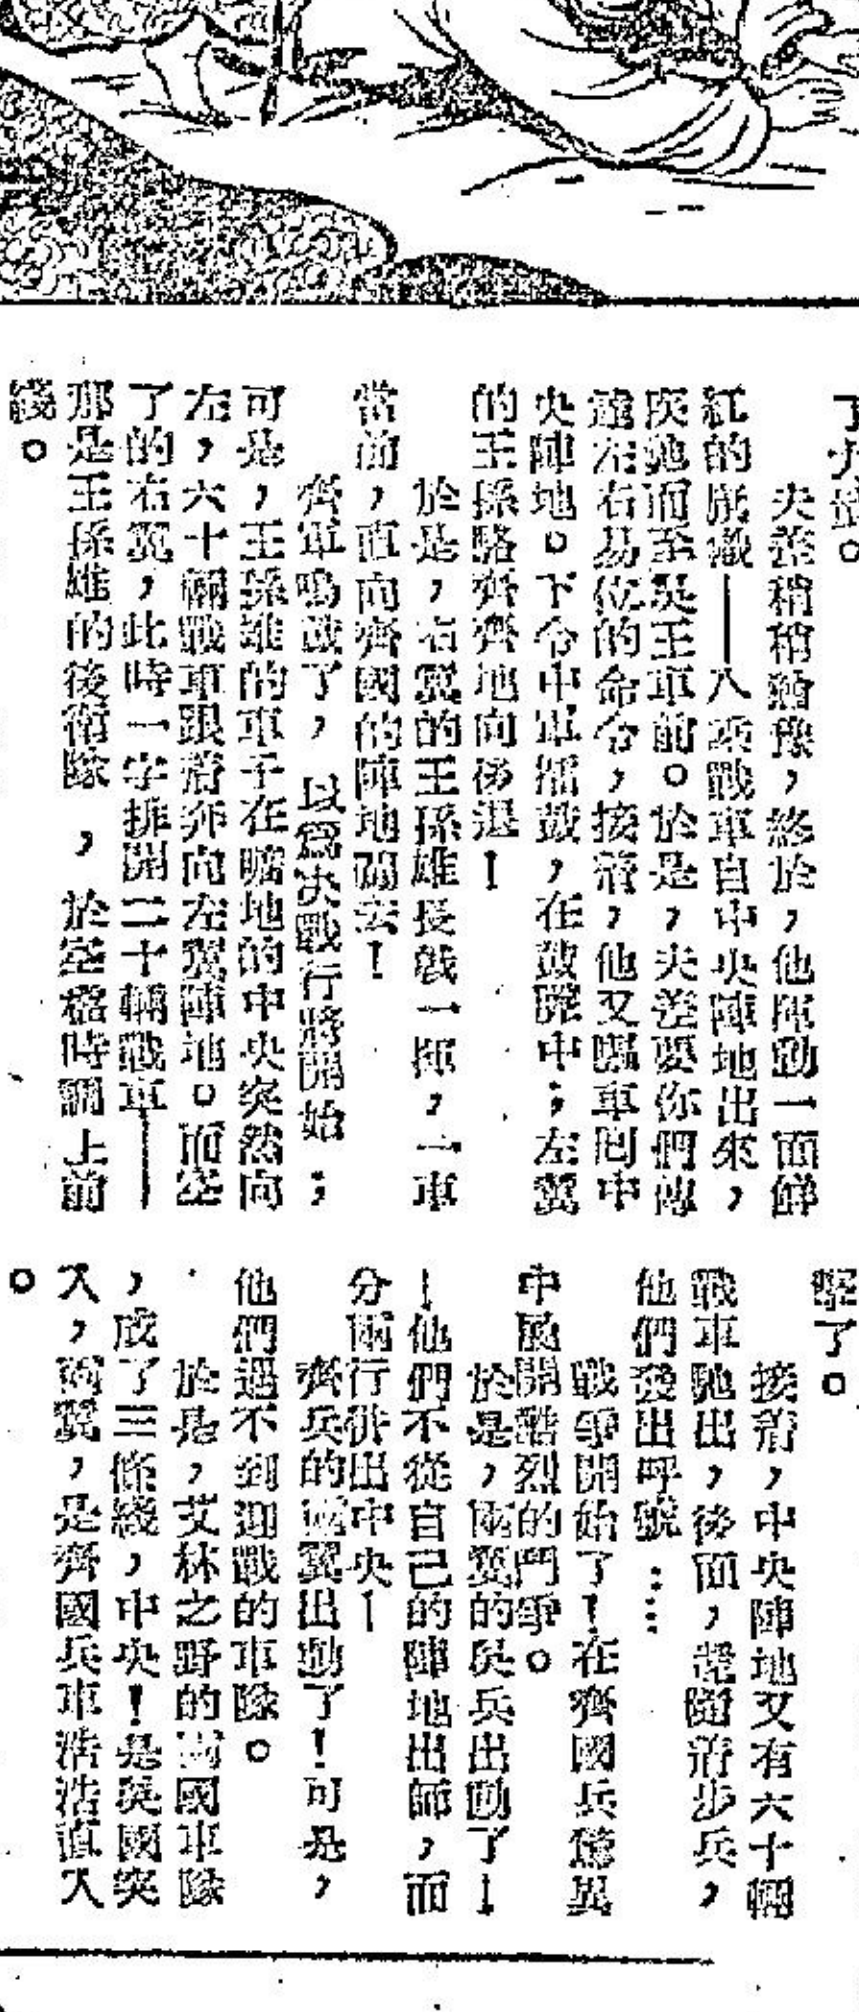 夫差稍稍猶豫，終於，他揮動一面鮮
紅的旗幟——八乘戰車自中央陣地出來，
疾馳而至吳王車前。於是，夫差要你們傳
達左右易位的命令，接着，他又驅車到中
央陣地。下令中軍擂鼓，在鼓聲中；左翼
的王孫駱齊齊地向後退！
於是，右翼的王孫雄長戟一揮，一車
當前，直向齊國的陣地闖去！
齊軍鳴鼓了，以爲決戰行將開始；
可是，王孫雄的車子在曠地的中央突然向
左，六十輛戰車跟着奔向左翼陣地。而空
了的右翼，此時一字排開二十輛戰車——
那是王孫雄的後衛隊，於空檔時調上前
綫。
擊了。
接着，中央陣地又有六十輛
戰車馳出，後面，緊隨着步兵，
他們發出呼號……
戰爭開始了！在齊國兵驚異
中展開酷烈的鬥爭。
於是，兩翼的吳兵出動了！
！他們不從自己的陣地出師，而
分兩行併出中央！
齊兵的兩翼出動了！可是，
他們遇不到迎戰的車隊。
於是，艾林之野的兩國車隊
，成了三條綫，中央！是吳國突
入，兩翼，是齊國兵車浩浩直入
。